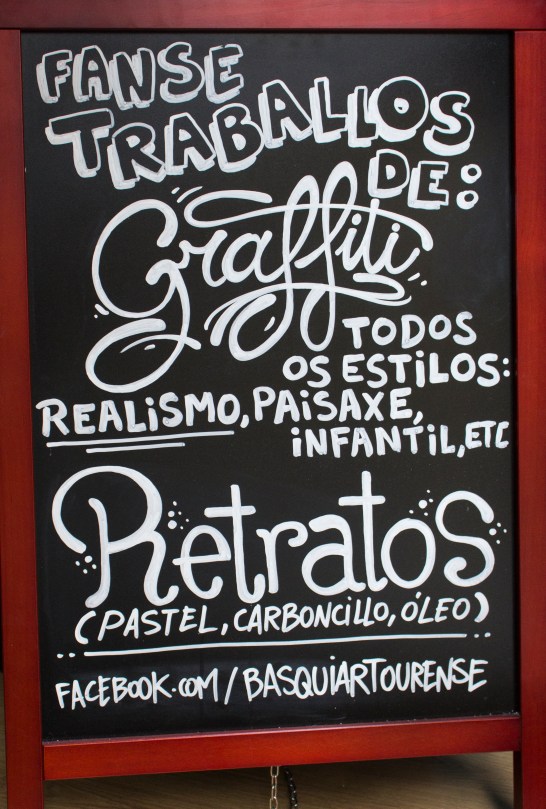 FANSE
TRABALLOS
DE:
Graffiti
TODOS
OS ESTILOS:
REALiSMO, PAiSAXE,
iNFANTiL, ETC
Retratos
(PASTEL, CARBONCILLO, ÓLEO)
FACEBOOK.COM/BASQUIARTOURENSE